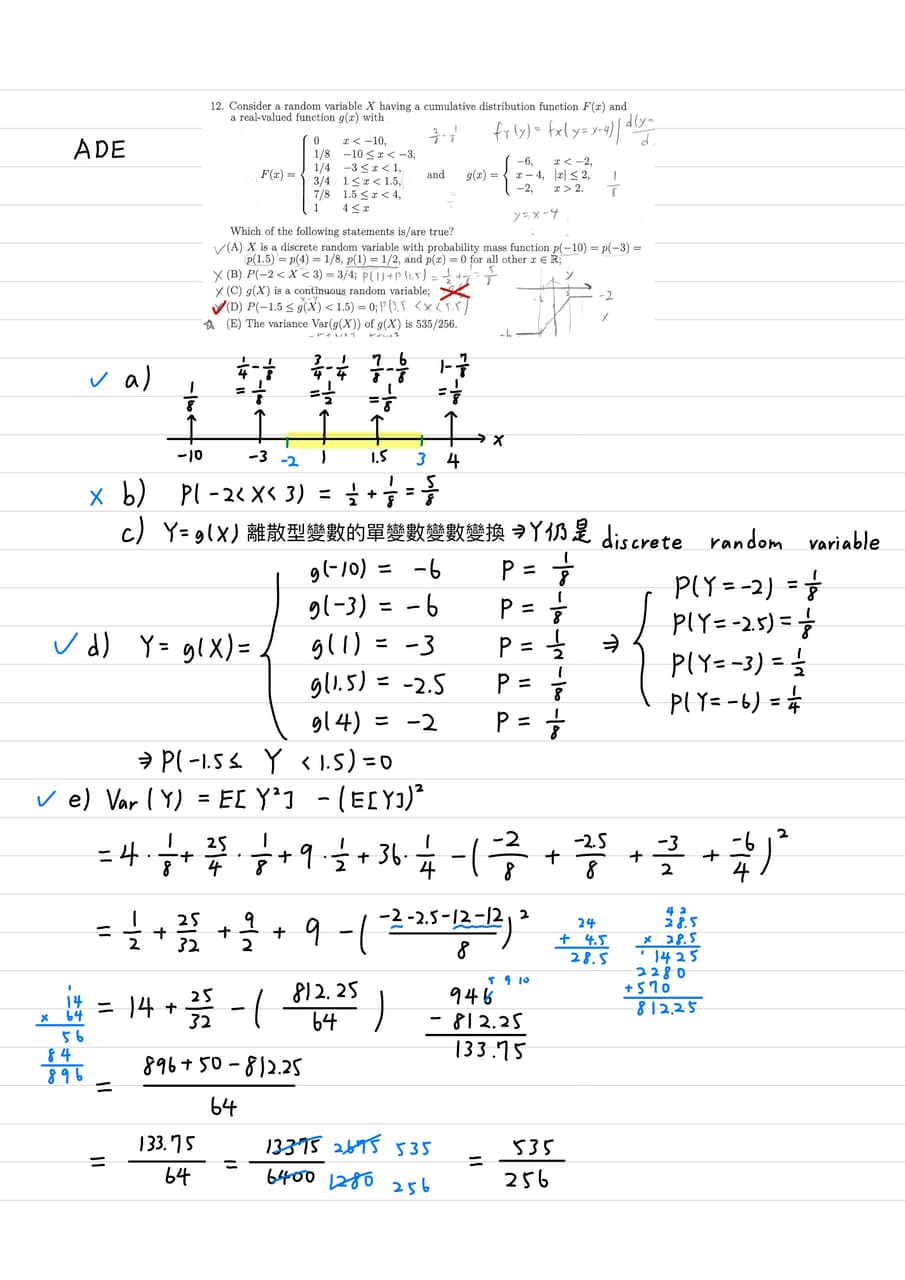 12. Consider a random variable X having a cumulative distribution function F(x) and
a real-valued function g(x) with
ADE
3/4 - 1/8
f_Y(y) = f_X(y = x-4) | d(y=
d.
F(x) = { 0 x < −10,
1/8 −10 ≤ x < −3,
1/4 −3 ≤ x < 1,
3/4 1 ≤ x < 1.5,
7/8 1.5 ≤ x < 4,
1 4 ≤ x
and g(x) = { −6, x < −2,
x − 4, |x| ≤ 2,
−2, x > 2.
1/8
y=x-4
Which of the following statements is/are true?
✓(A) X is a discrete random variable with probability mass function p(−10) = p(−3) =
p(1.5) = p(4) = 1/8, p(1) = 1/2, and p(x) = 0 for all other x ∈ ℝ;
X (B) P(−2 < X < 3) = 3/4; P(1)+P(1.5) = 1/2 + 1/8 = 5/8
X (C) g(X) is a continuous random variable;
✓(D) P(−1.5 ≤ g(X) < 1.5) = 0;
x-4
(E) The variance Var(g(X)) of g(X) is 535/256.
y
-2
x
-6
✓ a)
1/8
1/4 - 1/8 = 1/8
3/4 - 1/4 = 1/2
7/8 - 6/8 = 1/8
1 - 7/8 = 1/8
-10 -3 -2 1 1.5 3 4 x
x b) P(-2< X< 3) = 1/2 + 1/8 = 5/8
c) Y=g(X) 離散型變數的單變數變數變換 ⇒Y仍是 discrete random variable
✓ d) Y= g(X)= {
g(-10) = -6 P = 1/8
g(-3) = -6 P = 1/8
g(1) = -3 P = 1/2
g(1.5) = -2.5 P = 1/8
g(4) = -2 P = 1/8
⇒ {
P(Y=-2) = 1/8
P(Y=-2.5) = 1/8
P(Y=-3) = 1/2
P(Y=-6) = 1/4
⇒ P(-1.5≤ Y <1.5)=0
✓ e) Var(Y) = E[Y²] - (E[Y])²
= 4 · 1/8 + 25/4 · 1/8 + 9 · 1/2 + 36 · 1/4 - (-2/8 + -2.5/8 + -3/2 + -6/4)²
= 1/2 + 25/32 + 9/2 + 9 - ((-2-2.5-12-12)/8)²
24
+ 4.5
28.5
42
28.5
x 28.5
1425
2280
+570
812.25
1
14
x 64
56
84
896
= 14 + 25/32 - (812.25/64)
5 9 10
946
- 812.25
133.75
= (896+50-812.25)/64
= 133.75/64 = 13375/6400 2675/1280 535/256 = 535/256